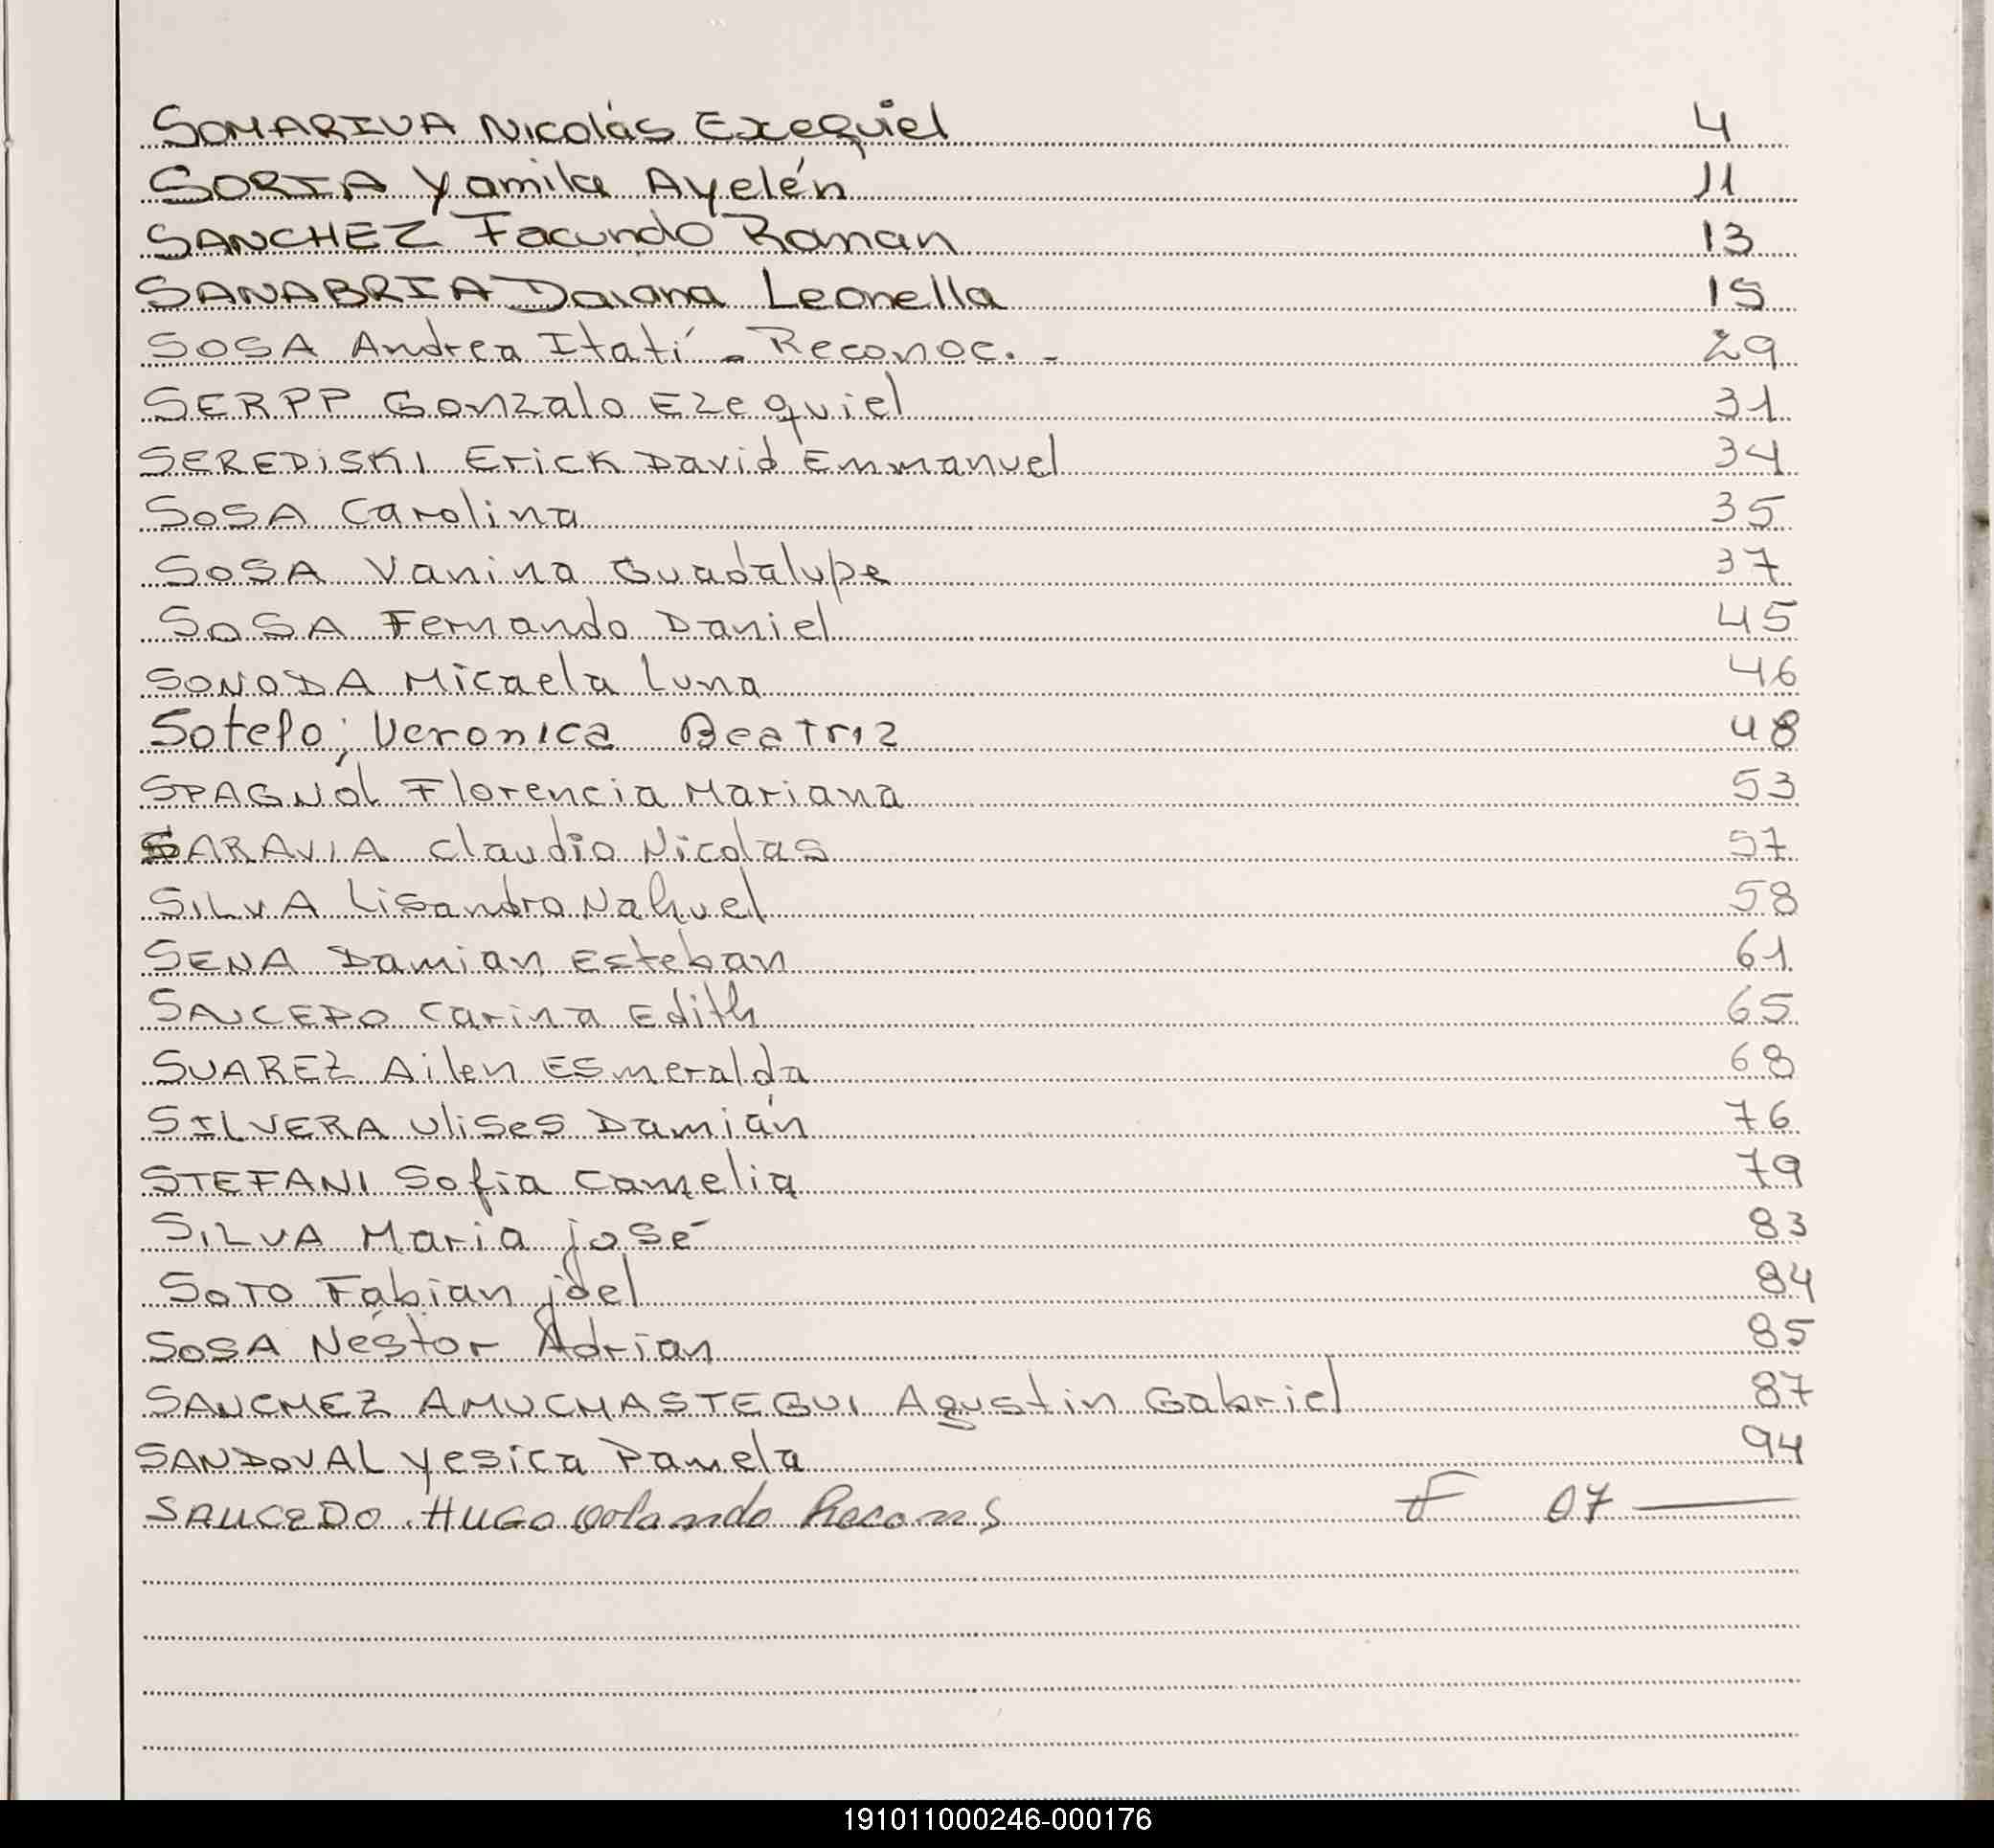 SOMARIVA Nicolás Exequiel 4
SORIA Yamila Ayelén 11
SANCHEZ Facundo Roman 13
SANABRIA Daiana Leonella 15
SOSA Andrea Itatí - Reconoc. - 29
SERPP Gonzalo Ezequiel 31
SEREDISKI Erick David Emmanuel 34
SOSA Carolina 35
SOSA Vanina Guadalupe 37
SOSA Fernando Daniel 45
SONODA Micaela Luna 46
Sotelo; Veronica Beatriz 48
SPAGNÓL Florencia Mariana 53
SARAVIA Claudio Nicolas 57
SILVA Lisandro Nahuel 58
SENA Damian Esteban 61
Carina Edith 65
SUAREZ Ailen Esmeralda 68
SILVERA Ulises Damián 76
STEFANI Sofia Camelia 79
SILVA Maria josé 83
SOTO Fabian joel 84
SOSA Néstor Adrian 85
SANCHEZ AMUCHASTEGUI Agustin Gabriel 87
SANDOVAL Yesica Pamela 94
SAUCEDO HUGO Orlando F 07
191011000246-000176